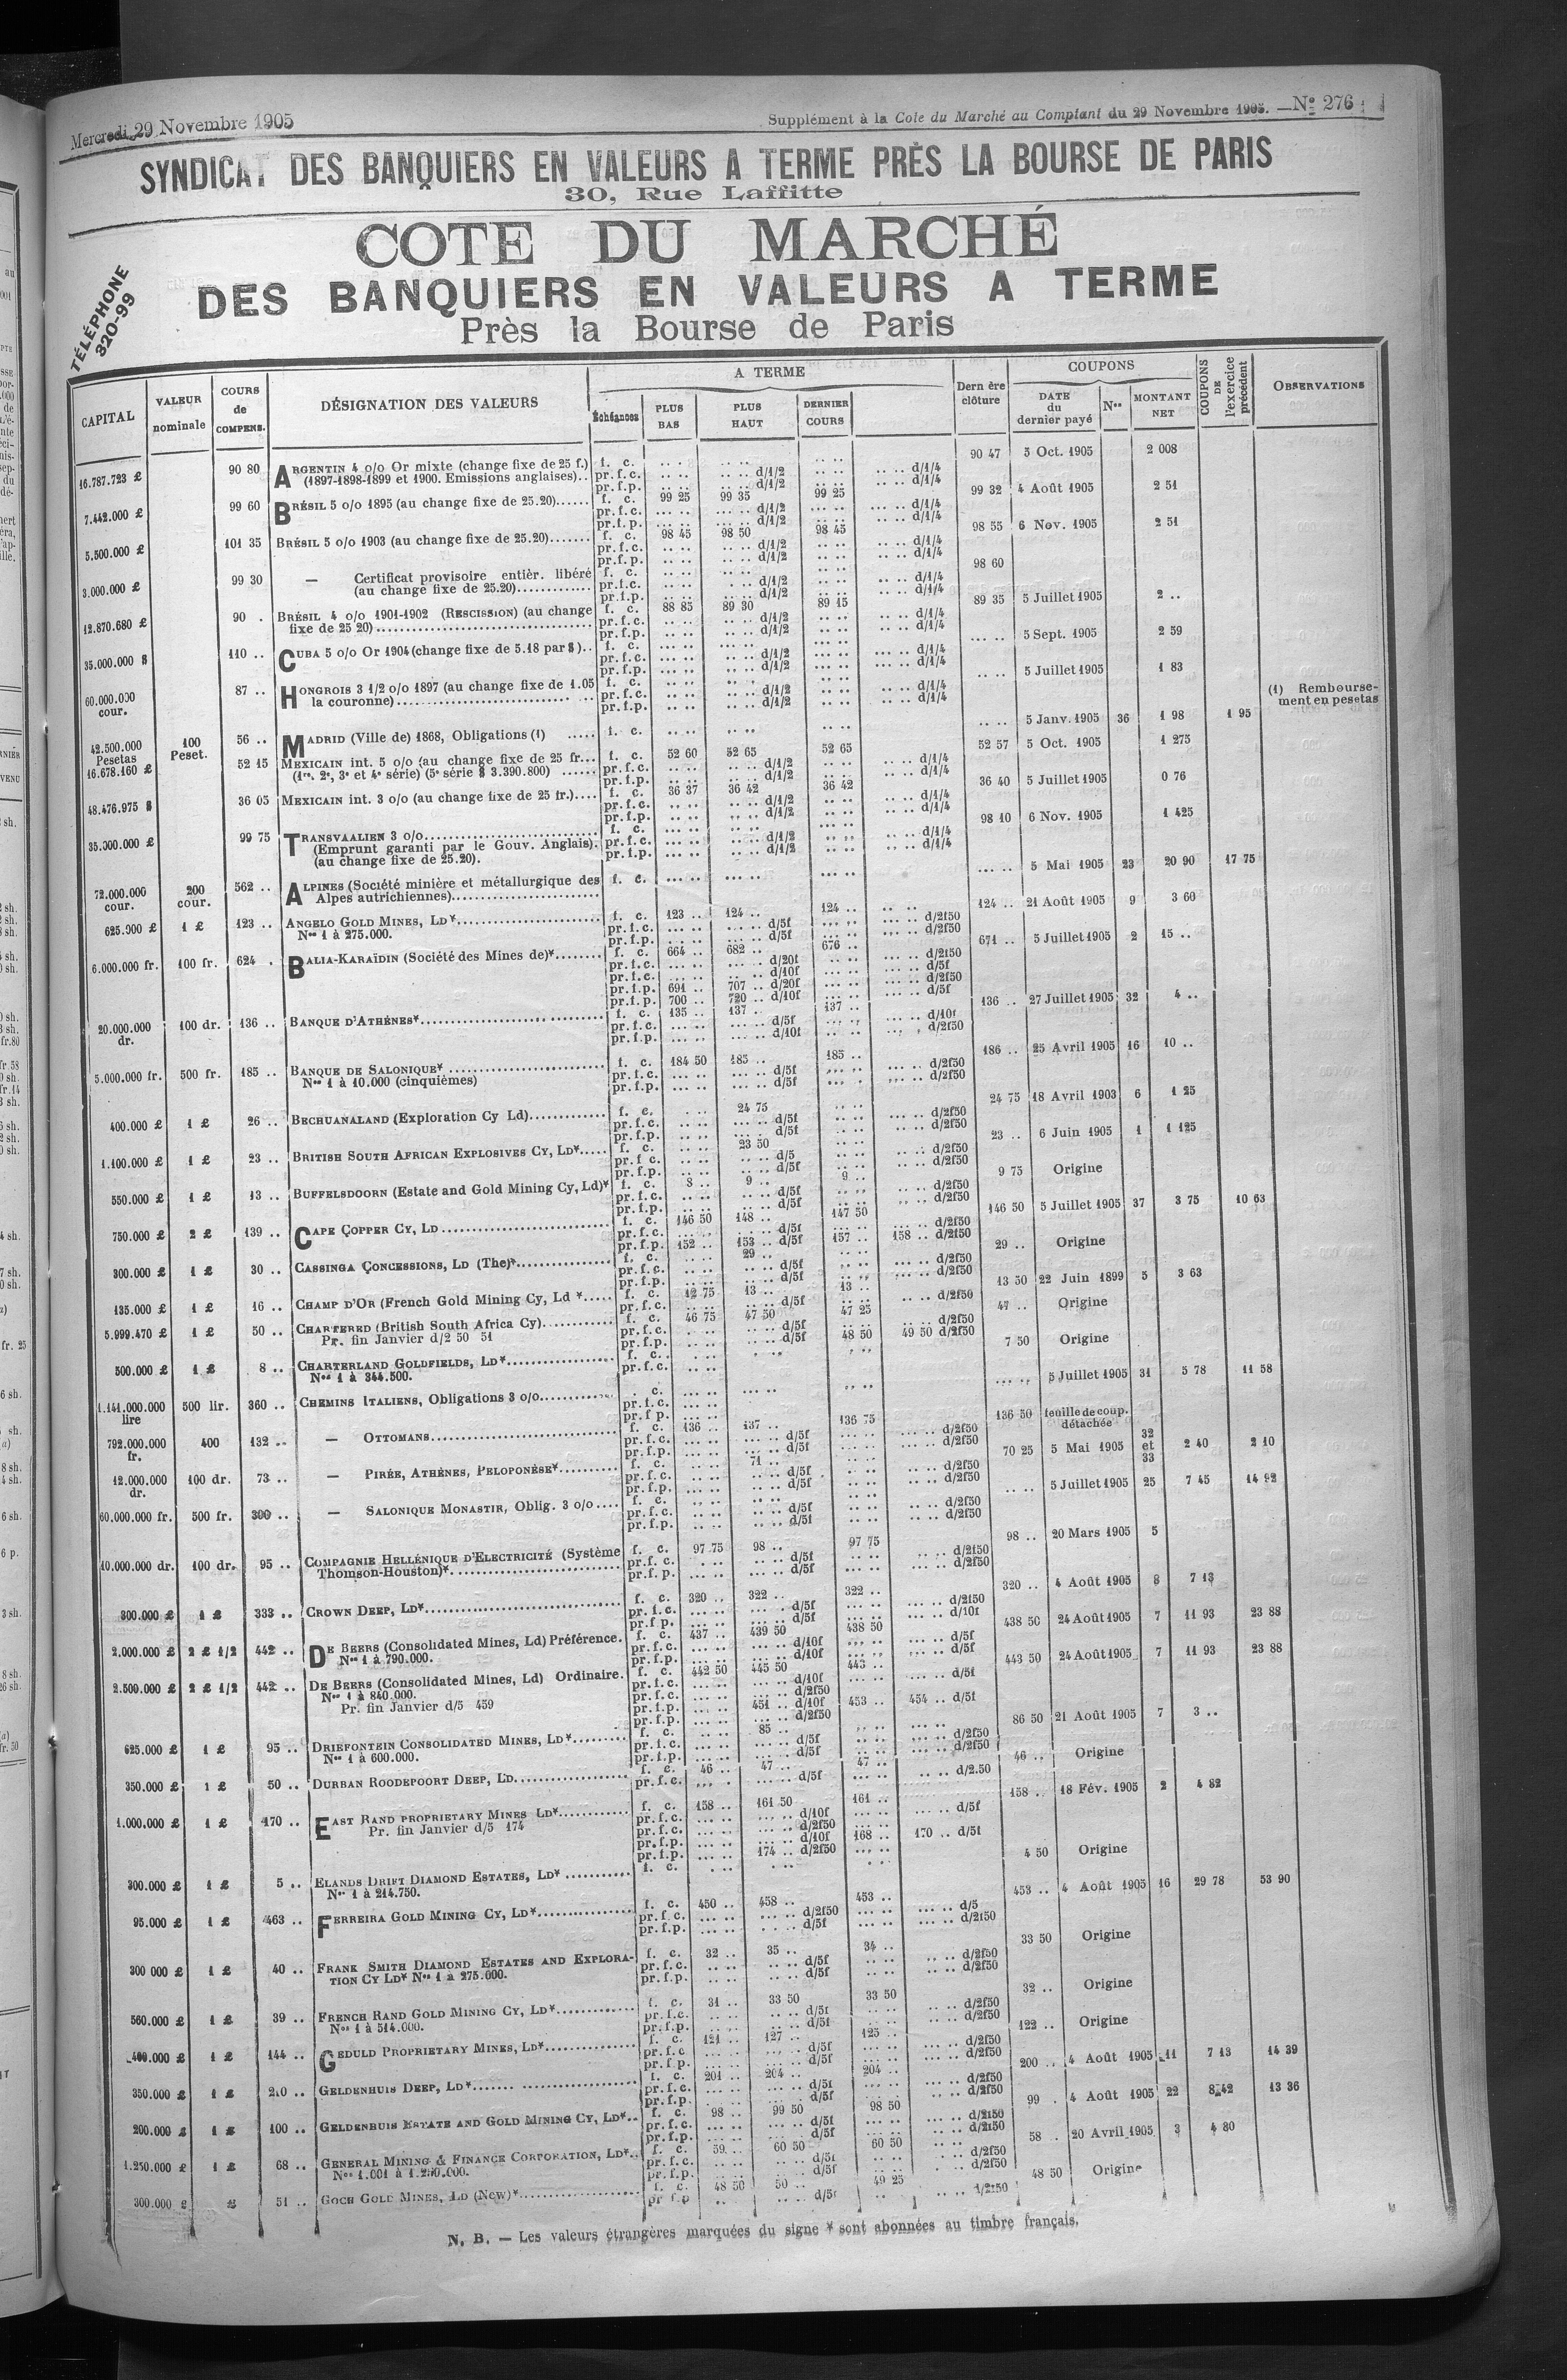 Mercredi 29 Novembre 1905
Supplément à la Cote du Marché au Comptant du 29 Novembre 1905. — No 276
SYNDICAT DES BANQUIERS EN VALEURS A TERME PRÈS LA BOURSE DE PARIS
30, Rue Laffitte
COTE DU MARCHÉ
DES BANQUIERS EN VALEURS A TERME
Près la Bourse de Paris
TÉLÉPHONE
320-99
CAPITAL VALEUR nominale COURS de COMPENS. DÉSIGNATION DES VALEURS A TERME Échéances PLUS BAS PLUS HAUT DERNIER COURS Dern ère clôture COUPONS DATE du dernier payé Nos MONTANT NET COUPONS DE l'exercice précédent OBSERVATIONS
16.787.723 £ 90 80 ARGENTIN 4 o/o Or mixte (change fixe de 25 f.) f. c. 90 47 5 Oct. 1905 2 008
(1897-1898-1899 et 1900. Emissions anglaises).. pr.f.c. d/1/2 d/1/4
pr.f.p. d/1/2 d/1/4
7.442.000 £ 99 60 BRÉSIL 5 o/o 1895 (au change fixe de 25.20)...... f. c. 99 25 99 35 99 25 99 32 4 Août 1905 2 51
pr.f.c. d/1/2 d/1/4
pr.f.p. d/1/2 d/1/4
5.500.000 £ 101 35 BRÉSIL 5 o/o 1903 (au change fixe de 25.20)....... f. c. 98 45 98 50 98 45 98 55 6 Nov. 1905 2 51
pr.f.c. d/1/2 d/1/4
pr.f.p. d/1/2 d/1/4
3.000.000 £ 99 30 — Certificat provisoire entièr. libéré f. c. 98 60
(au change fixe de 25.20)............. pr.f.c. d/1/2 d/1/4
pr.f.p. d/1/2 d/1/4
12.870.680 £ 90 . BRÉSIL 4 o/o 1901-1902 (RESCISSION) (au change f. c. 88 85 89 30 89 15 89 35 5 Juillet 1905 2 ..
fixe de 25 20) pr.f.c. d/1/2 d/1/4
pr.f.p. d/1/2 d/1/4
35.000.000 $ 110 .. CUBA 5 o/o Or 1904 (change fixe de 5.18 par $).. f. c. 5 Sept. 1905 2 59
pr.f.c. d/1/2 d/1/4
pr.f.p. d/1/2 d/1/4
60.000.000 cour. 87 .. HONGROIS 3 1/2 o/o 1897 (au change fixe de 1.05 f. c. 5 Juillet 1905 1 83
la couronne) pr.f.c. d/1/2 d/1/4
pr.f.p. d/1/2 d/1/4
42.500.000 Pesetas 100 Peset. 56 .. MADRID (Ville de) 1868, Obligations (1) ..... f. c. 5 Janv. 1905 36 1 98 1 95 (1) Remboursement en pesetas
16.678.160 £ 52 15 MEXICAIN int. 5 o/o (au change fixe de 25 fr... f. c. 52 60 52 65 52 65 52 57 5 Oct. 1905 1 275
(1re, 2e, 3e et 4e série) (5e série $ 3.390.800) ...... pr.f.c. d/1/2 d/1/4
pr.f.p. d/1/2 d/1/4
48.476.975 $ 36 05 MEXICAIN int. 3 o/o (au change fixe de 25 fr.).... f. c. 36 37 36 42 36 42 36 40 5 Juillet 1905 0 76
pr.f.c. d/1/2 d/1/4
pr.f.p. d/1/2 d/1/4
35.000.000 £ 99 75 TRANSVAALIEN 3 o/o f. c. 98 10 6 Nov. 1905 1 425
(Emprunt garanti par le Gouv. Anglais). pr.f.c. d/1/2 d/1/4
(au change fixe de 25.20). pr.f.p. d/1/2 d/1/4
72.000.000 cour. 200 cour. 562 .. ALPINES (Société minière et métallurgique des f. c. 5 Mai 1905 23 20 90 17 75
Alpes autrichiennes)
625.000 £ 1 £ 123 .. ANGELO GOLD MINES, LD* f. c. 123 .. 124 .. 124 .. 124 .. 21 Août 1905 9 3 60
Nos 1 à 275.000. pr.f.c. d/5f d/2f50
pr.f.p. d/5f d/2f50
6.000.000 fr. 100 fr. 624 . BALIA-KARAÏDIN (Société des Mines de)* f. c. 664 .. 682 .. 676 .. 671 .. 5 Juillet 1905 2 15 ..
pr.f.c. d/20f d/2f50
pr.f.c. d/10f d/5f
pr.f.p. 691 .. 707 .. d/20f d/2f50
pr.f.p. 700 .. 720 .. d/10f d/5f
20.000.000 dr. 100 dr. 136 .. BANQUE D'ATHÈNES* f. c. 135 .. 137 .. 137 .. 136 .. 27 Juillet 1905 32 4 ..
pr.f.c. d/5f d/10f
pr.f.p. d/10f d/2f50
5.000.000 fr. 500 fr. 185 .. BANQUE DE SALONIQUE* f. c. 184 50 185 .. 185 .. 186 .. 25 Avril 1905 16 10 ..
Nos 1 à 10.000 (cinquièmes) pr.f.c. d/5f d/2f50
pr.f.p. d/5f d/2f50
400.000 £ 1 £ 26 .. BECHUANALAND (Exploration Cy Ld) f. c. 24 75 24 75 18 Avril 1903 6 1 25
pr.f.c. d/5f d/2f50
pr.f.p. d/5f d/2f50
1.100.000 £ 1 £ 23 .. BRITISH SOUTH AFRICAN EXPLOSIVES CY, LD* f. c. 23 50 23 .. 6 Juin 1905 1 1 125
pr.f.c. d/5 d/2f50
pr.f.p. d/5f d/2f50
550.000 £ 1 £ 13 .. BUFFELSDOORN (Estate and Gold Mining Cy, Ld)* f. c. 8 .. 9 .. 9 .. 9 75 Origine
pr.f.c. d/5f d/2f50
pr.f.p. d/5f d/2f50
750.000 £ 2 £ 139 .. CAPE COPPER CY, LD f. c. 146 50 148 .. 147 50 146 50 5 Juillet 1905 37 3 75 10 63
pr.f.c. d/5f d/2f50
pr.f.p. 152 .. 153 .. d/5f 157 .. 158 .. d/2f50
300.000 £ 1 £ 30 .. CASSINGA CONCESSIONS, LD (The)* f. c. 29 .. 29 .. Origine
pr.f.c. d/5f d/2f50
pr.f.p. d/5f d/2f50
135.000 £ 1 £ 16 .. CHAMP D'OR (French Gold Mining Cy, Ld *..... f. c. 12 75 13 .. 13 .. 13 50 22 Juin 1899 5 3 63
pr.f.c. d/5f d/2f50
5.999.470 £ 1 £ 50 .. CHARTERED (British South Africa Cy) f. c. 46 75 47 50 47 25 47 .. Origine
Pr. fin Janvier d/2 50 51 pr.f.c. d/5f d/2f50
pr.f.p. d/5f 48 50 49 50 d/2f50
500.000 £ 1 £ 8 .. CHARTERLAND GOLDFIELDS, LD* f. c. 7 50 Origine
Nos 1 à 344.500. pr.f.c.
1.141.000.000 lire 500 lir. 360 .. CHEMINS ITALIENS, Obligations 3 o/o . c. 5 Juillet 1905 31 5 78 11 58
pr.f.c.
pr.f.p.
792.000.000 fr. 400 132 .. — OTTOMANS f. c. 136 .. 137 .. 136 75 136 50 feuille de coup. détachée
pr.f.c. d/5f d/2f50
pr.f.p. d/5f d/2f50
12.000.000 dr. 100 dr. 73 .. — PIRÉE, ATHÈNES, PELOPONÈSE* f. c. 71 .. 70 25 5 Mai 1905 32 et 33 2 40 2 10
pr.f.c. d/5f d/2f50
pr.f.p. d/5f d/2f50
60.000.000 fr. 500 fr. 300 .. — SALONIQUE MONASTIR, Oblig. 3 o/o .... f. c. 5 Juillet 1905 25 7 45 14 92
pr.f.c. d/5f d/2f50
pr.f.p. d/5f d/2f50
10.000.000 dr. 100 dr. 95 .. COMPAGNIE HELLÉNIQUE D'ELECTRICITÉ (Système f. c. 97 75 98 .. 97 75 98 .. 20 Mars 1905 5
Thomson-Houston)* pr.f.c. d/5f d/2f50
pr.f.p. d/5f d/2f50
300.000 £ 1 £ 333 .. CROWN DEEP, LD* f. c. 320 .. 322 .. 322 .. 320 .. 4 Août 1905 8 7 13
pr.f.c. d/5f d/2f50
pr.f.p. d/5f d/10f
2.000.000 £ 2 £ 1/2 442 .. DE BEERS (Consolidated Mines, Ld) Préférence. f. c. 437 .. 439 50 438 50 438 50 24 Août 1905 7 11 93 23 88
Nos 1 à 790.000. pr.f.c. d/10f d/5f
pr.f.p. d/10f d/5f
2.500.000 £ 2 £ 1/2 442 .. DE BEERS (Consolidated Mines, Ld) Ordinaire. f. c. 442 50 445 50 443 .. 443 50 24 Août 1905 7 11 93 23 88
Nos 1 à 840.000. pr.f.c. d/10f d/5f
Pr. fin Janvier d/5 459 pr.f.c. d/2f50
pr.f.p. 451 .. d/10f 453 .. 454 .. d/5f
pr.f.p. d/2f50
625.000 £ 1 £ 95 .. DRIEFONTEIN CONSOLIDATED MINES, LD* f. c. 85 .. 86 50 21 Août 1905 7 3 ..
Nos 1 à 600.000. pr.f.c. d/5f d/2f50
pr.f.p. d/5f d/2f50
350.000 £ 1 £ 50 .. DURBAN ROODEPOORT DEEP, LD f. c. 46 .. 47 .. 47 .. 46 .. Origine
pr.f.c. d/5f d/2.50
1.000.000 £ 1 £ 170 .. EAST RAND PROPRIETARY MINES LD* f. c. 158 .. 161 50 161 .. 158 .. 18 Fév. 1905 2 4 82
Pr. fin Janvier d/5 174 pr.f.c. d/10f d/5f
pr.f.c. d/2f50
pr.f.p. d/10f 168 .. 170 .. d/5f
pr.f.p. 174 .. d/2f50
300.000 £ 1 £ 5 .. ELANDS DRIFT DIAMOND ESTATES, LD* f. c. 4 50 Origine
Nos 1 à 214.750.
95.000 £ 1 £ 463 .. FERREIRA GOLD MINING CY, LD* f. c. 450 .. 458 .. 453 .. 453 .. 4 Août 1905 16 29 78 53 90
pr.f.c. d/2f50 d/5
pr.f.p. d/5f d/2f50
300 000 £ 1 £ 40 .. FRANK SMITH DIAMOND ESTATES AND EXPLORA- f. c. 32 .. 35 .. 34 .. 33 50 Origine
TION CY LD* Nos 1 à 275.000. pr.f.c. d/5f d/2f50
pr.f.p. d/5f d/2f50
560.000 £ 1 £ 39 .. FRENCH RAND GOLD MINING CY, LD* f. c. 31 .. 33 50 33 50 32 .. Origine
Nos 1 à 514.000. pr.f.c. d/5f d/2f50
pr.f.p. d/5f d/2f50
400.000 £ 1 £ 144 .. GEDULD PROPRIETARY MINES, LD* f. c. 121 .. 127 .. 125 .. 122 .. Origine
pr.f.c d/5f d/2f50
pr.f.p. d/5f d/2f50
350.000 £ 1 £ 210 .. GELDENHUIS DEEP, LD* f. c. 201 .. 204 .. 204 .. 200 .. 4 Août 1905 11 7 13 14 39
pr.f.c. d/5f d/2f50
pr.f.p. d/5f d/2f50
200.000 £ 1 £ 100 .. GELDENHUIS ESTATE AND GOLD MINING CY, LD*.. f. c. 98 .. 99 50 98 50 99 . 4 Août 1905 22 8 42 13 36
pr.f.c. d/5f d/2f50
pr.f.p. d/5f d/2f50
1.250.000 £ 1 £ 68 .. GENERAL MINING & FINANCE CORPORATION, LD*.. f. c. 59 .. 60 50 60 50 58 .. 20 Avril 1905 3 4 80
Nos 1.001 à 1.250.000. pr.f.c. d/5f d/2f50
pr.f.p. d/5f d/2f50
300.000 £ £ 51 .. GOCH GOLD MINES, LD (New)* f. c. 48 50 50 .. 49 25 48 50 Origine
pr f.p d/5f 1/2f50
N. B. — Les valeurs étrangères marquées du signe * sont abonnées au timbre français.